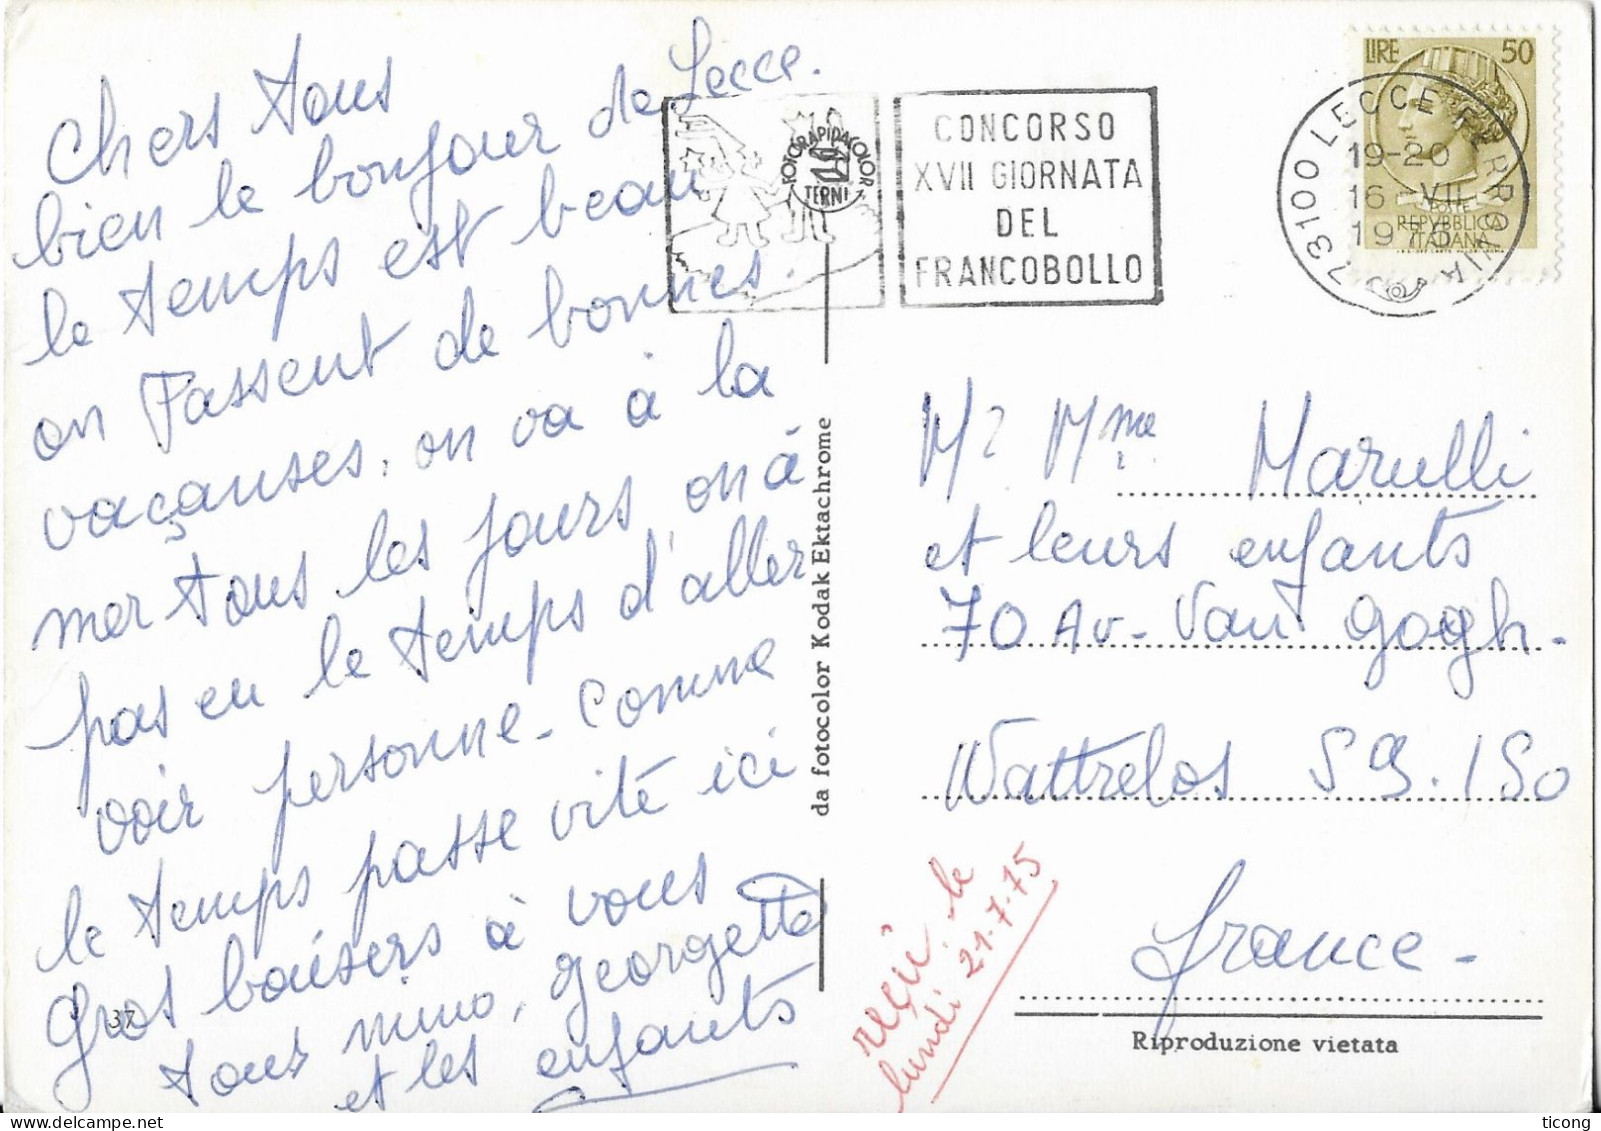 Chers tous
bien le bonjour de Lecce.
le temps est beau
on Passent de bonnes.
vacançuses, on va à la
mer tous les jours on à
pas eu le temps d'aller
voir personne - Comme
le temps passe vite ici
gros baisers à vous
tous mimo, georgette
et les enfants
37
FOTORAPIDACOLOR
TERNI
CONCORSO
XVII GIORNATA
DEL
FRANCOBOLLO
LIRE 50
REPVBBLICA
ITALIANA
73100 LECCE FERROVIA
19-20
16 - VII
da fotocolor Kodak Ektachrome
Mr Mme Marulli
et leurs enfants
70 Av- Van gogh-
Wattrelos 59.150
france -
reçu le
lundi 21.7.75
Riproduzione vietata
ticong